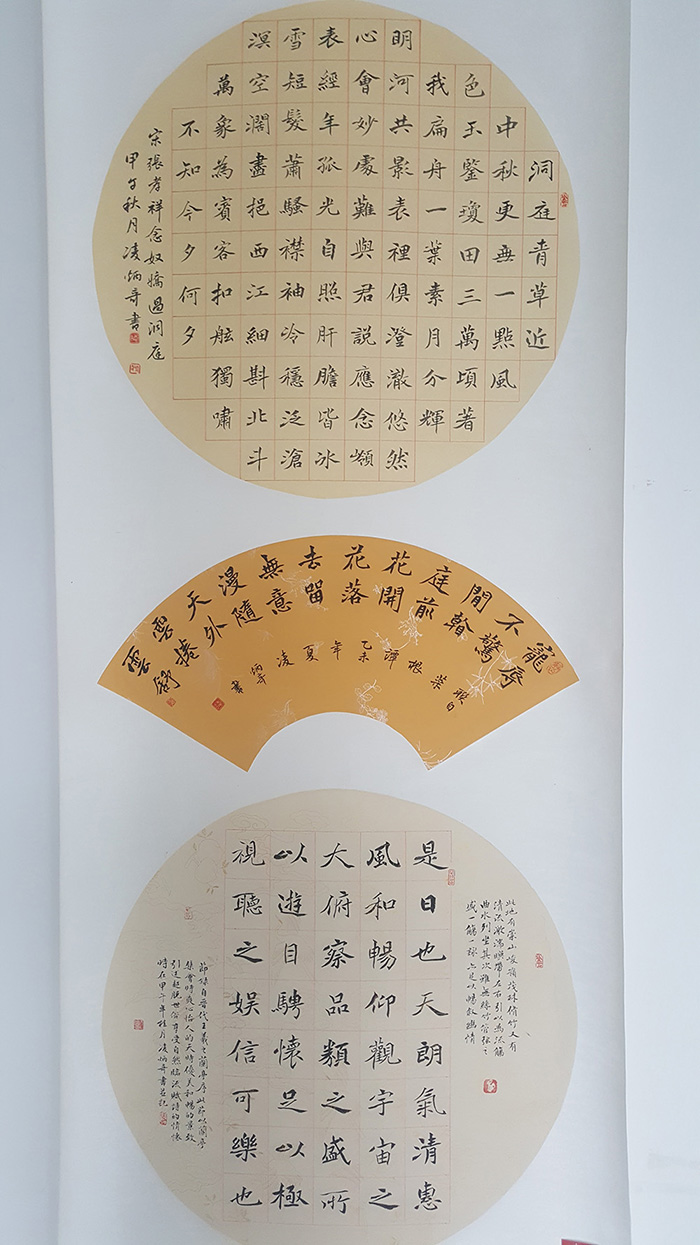 洞庭青草近
中秋更無一點風
色玉鑒瓊田三萬頃著
我扁舟一葉素月分輝
明河共影表裡俱澄澈悠然
心會妙處難與君說應念嶺
表經年孤光自照肝膽皆冰
雪短髮蕭騷襟袖冷穩泛滄
溟空濶盡挹西江細斟北斗
萬象為賓客扣舷獨嘯
不知今夕何夕
宋張孝祥念奴嬌過洞庭
甲午秋月凌炳奇書
寵辱
不驚
閒
庭前
花開
花落
去留
無意
漫隨
天外
雲捲
雲舒
錄自
菜
根
譚
乙未
年
夏
凌
炳奇
書
此地有崇山峻領茂林修竹又有
清流激湍暎帶左右引以為流觴
曲水列坐其次雖無絲竹管弦之
盛一觴一詠亦足以暢敘幽情
是日也天朗氣清惠
風和暢仰觀宇宙之
大俯察品類之盛所
以遊目騁懷足以極
視聽之娛信可樂也
節錄自晉代王羲之蘭亭序此節以蘭亭
集會時賞心怡人的天時優美和暢的景致
引述超脫世俗享受自然臨流賦詩的情懷
時在甲午年桂月凌炳奇書並記